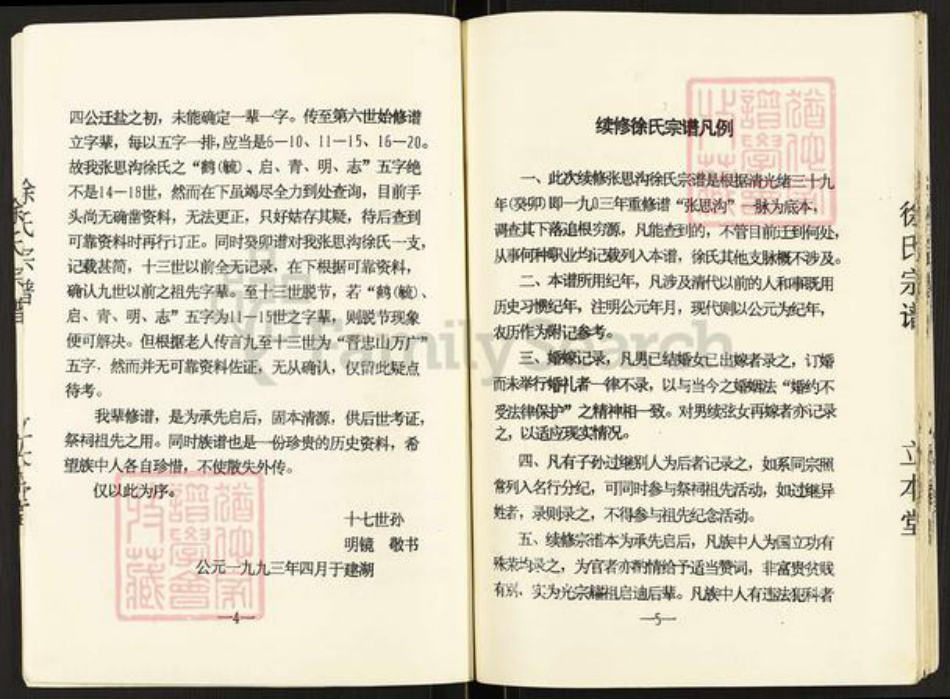 四公迁盐之初，未能确定一辈一字。传至第六世始修谱
立字辈，每以五字一排，应当是6—10、11—15、16—20。
故我张思沟徐氏之“鹤(毓)、启、青、明、志”五字绝
不是14—18世，然而在下虽竭尽全力到处查询，目前手
头尚无确凿资料，无法更正，只好姑存其疑，待后查到
可靠资料时再行订正。同时癸卯谱对我张思沟徐氏一支，
记载甚简，十三世以前全无记录，在下根据可靠资料，
确认九世以前之祖先字辈。至十三世脱节，若“鹤(毓)、
启、青、明、志”五字为11—15世之字辈，则脱节现象
便可解决。但根据老人传言九至十三世为“晋忠山万广”
五字，然而并无可靠资料佐证，无从确认，仅留此疑点
待考。
我辈修谱，是为承先启后，固本清源，供后世考证，
祭祠祖先之用。同时族谱也是一份珍贵的历史资料，希
望族中人各自珍惜，不使散失外传。
仅以此为序。
十七世孙
明镜 敬书
公元一九九三年四月于建湖
—4—
续修徐氏宗谱凡例
一、此次续修张思沟徐氏宗谱是根据清光绪三十九
年(癸卯)即一九0三年重修谱“张思沟”一脉为底本，
调查其下落追根穷源，凡能查到的，不管目前迁到何处，
从事何种职业均记载列入本谱，徐氏其他支脉概不涉及。
二、本谱所用纪年，凡涉及清代以前的人和事既用
历史习惯纪年，注明公元年月，现代则以公元为纪年，
农历作为附记参考。
三、婚嫁记录，凡男已结婚女已出嫁者录之，订婚
而未举行婚礼者一律不录，以与当今之婚姻法“婚约不
受法律保护”之精神相一致。对男续弦女再嫁者亦记录
之，以适应现实情况。
四、凡有子孙过继别人为后者记录之，如系同宗照
常列入名行分纪，可同时参与祭祠祖先活动，如过继异
姓者，录则录之，不得参与祖先纪念活动。
五、续修宗谱本为承先启后，凡族中人为国立功有
殊荣均录之，为官者亦酌情给予适当赞词，非富贵贫贱
有别，实为光宗耀祖启迪后辈。凡族中人有违法犯科者
—5—
徐氏宗谱
立本堂
FamilySearch